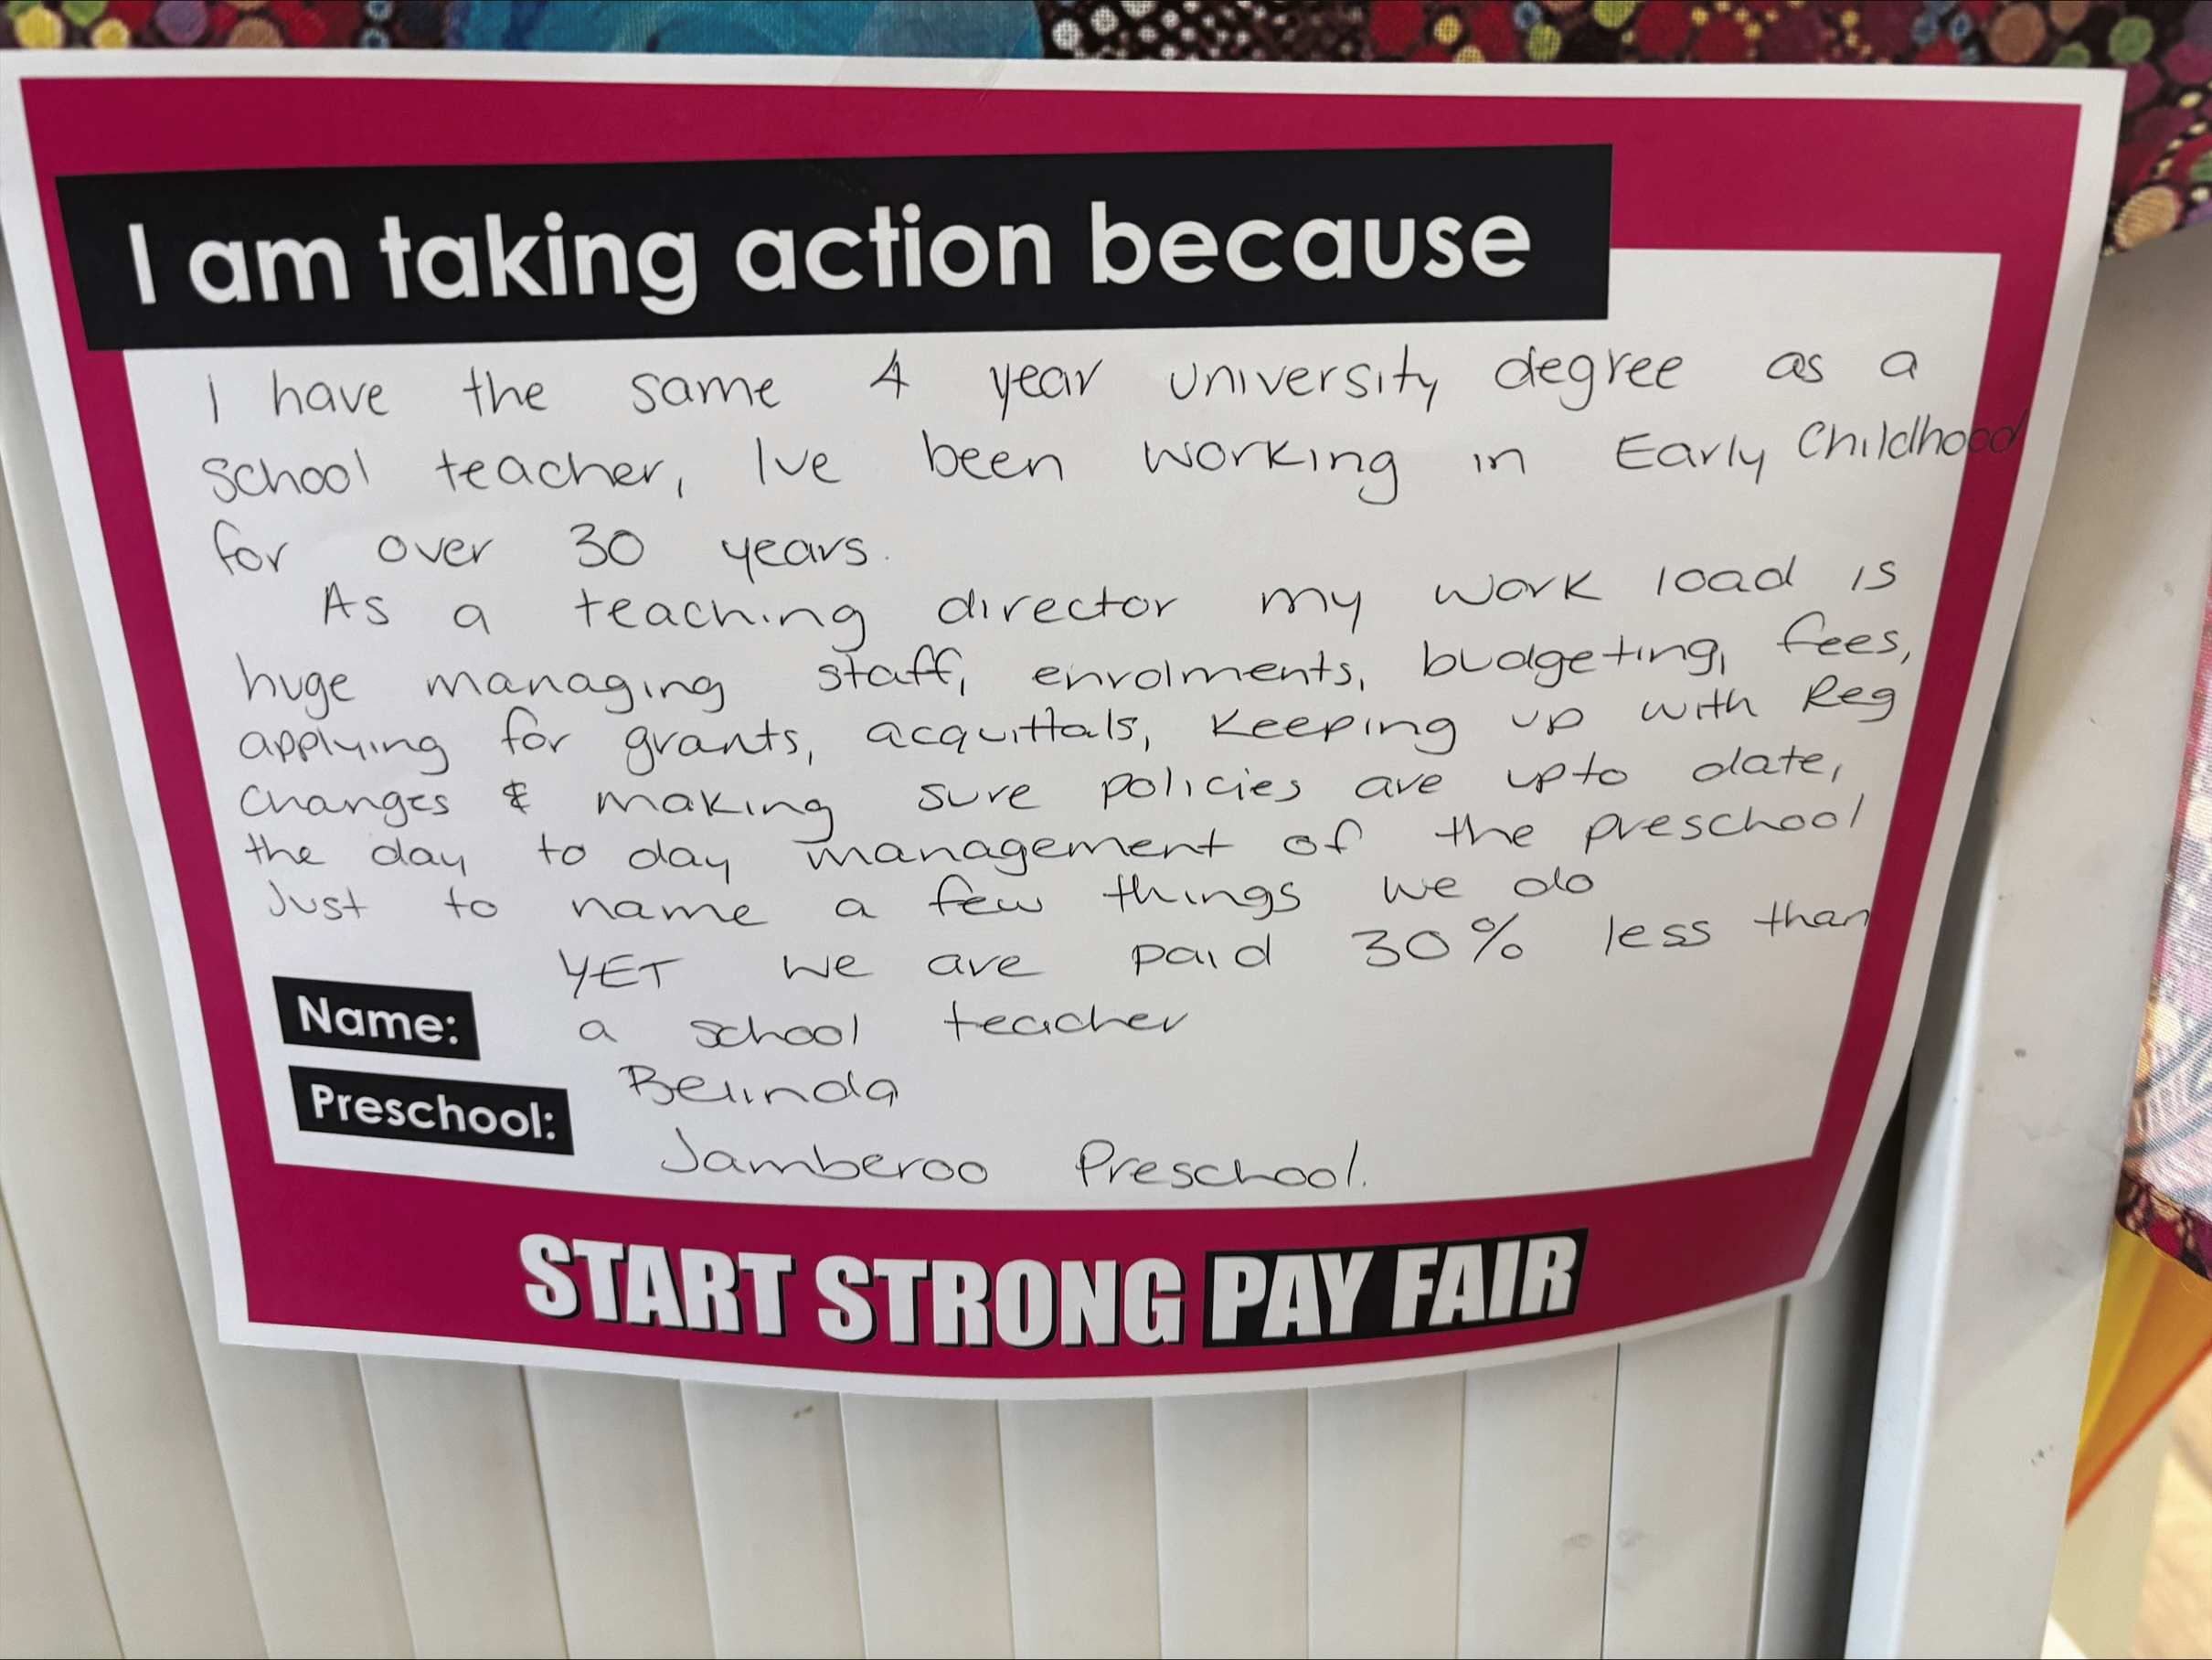 I am taking action because
I have the same 4 year university degree as a
school teacher, Ive been working in Early Childhood
for over 30 years.
As a teaching director my work load is
huge managing staff, enrolments, budgeting, fees,
applying for grants, acquittals, keeping up with Reg
changes & making sure policies are upto date,
the day to day management of the preschool
Just to name a few things we do
YET we are paid 30% less than
a school teacher
Name: Belinda
Preschool: Jamberoo Preschool.
START STRONG PAY FAIR